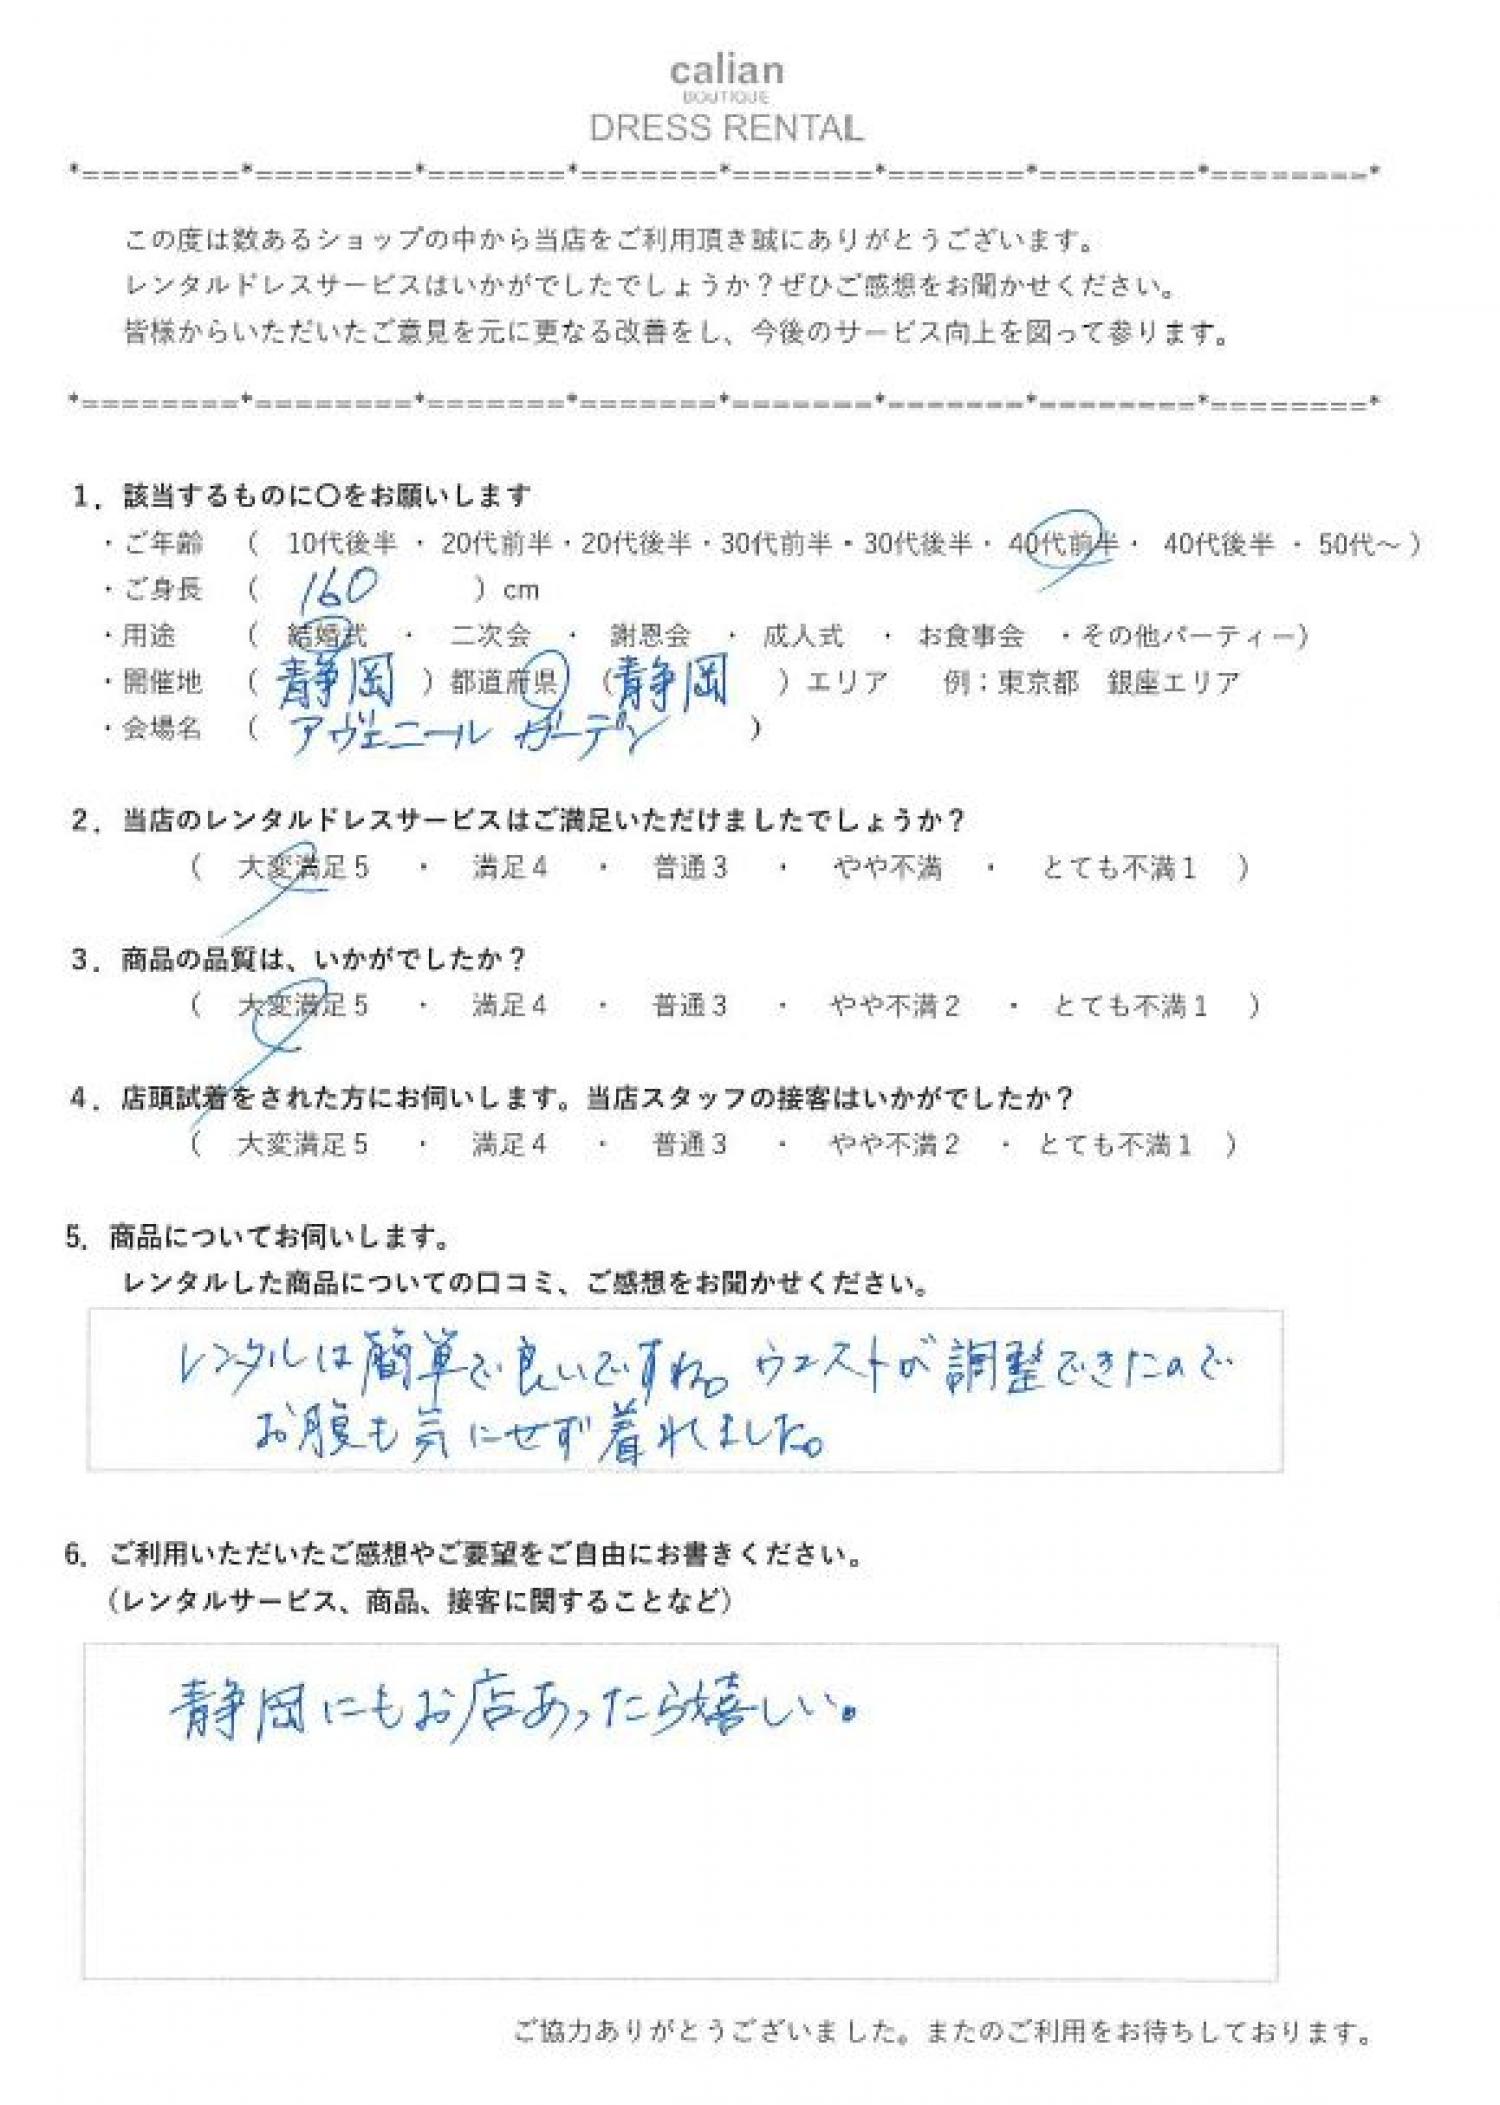 calian
BOUTIQUE
DRESS RENTAL
*========*========*=======*=======*=======*=======*========*========*
この度は数あるショップの中から当店をご利用頂き誠にありがとうございます。
レンタルドレスサービスはいかがでしたでしょうか？ぜひご感想をお聞かせください。
皆様からいただいたご意見を元に更なる改善をし、今後のサービス向上を図って参ります。
*========*========*=======*=======*=======*=======*========*========*
1．該当するものに〇をお願いします
・ご年齢 （ 10代後半 ・ 20代前半・20代後半・30代前半・30代後半・ 40代前半・ 40代後半 ・ 50代～ ）
・ご身長 （ 160 ）cm
・用途 （ 結婚式 ・ 二次会 ・ 謝恩会 ・ 成人式 ・ お食事会 ・その他パーティー）
・開催地 （ 静岡 ）都道府県 （静岡 ）エリア 例：東京都 銀座エリア
・会場名 （ アヴェニール ガーデン ）
2．当店のレンタルドレスサービスはご満足いただけましたでしょうか？
（ 大変満足５ ・ 満足４ ・ 普通３ ・ やや不満 ・ とても不満１ ）
3．商品の品質は、いかがでしたか？
（ 大変満足５ ・ 満足４ ・ 普通３ ・ やや不満２ ・ とても不満１ ）
4．店頭試着をされた方にお伺いします。当店スタッフの接客はいかがでしたか？
（ 大変満足５ ・ 満足４ ・ 普通３ ・ やや不満２ ・ とても不満１ ）
5．商品についてお伺いします。
レンタルした商品についての口コミ、ご感想をお聞かせください。
レンタルは簡単で良いですね。ウエストが調整できたので
お腹も気にせず着れました。
6．ご利用いただいたご感想やご要望をご自由にお書きください。
（レンタルサービス、商品、接客に関することなど）
静岡にもお店あったら嬉しい。
ご協力ありがとうございました。またのご利用をお待ちしております。